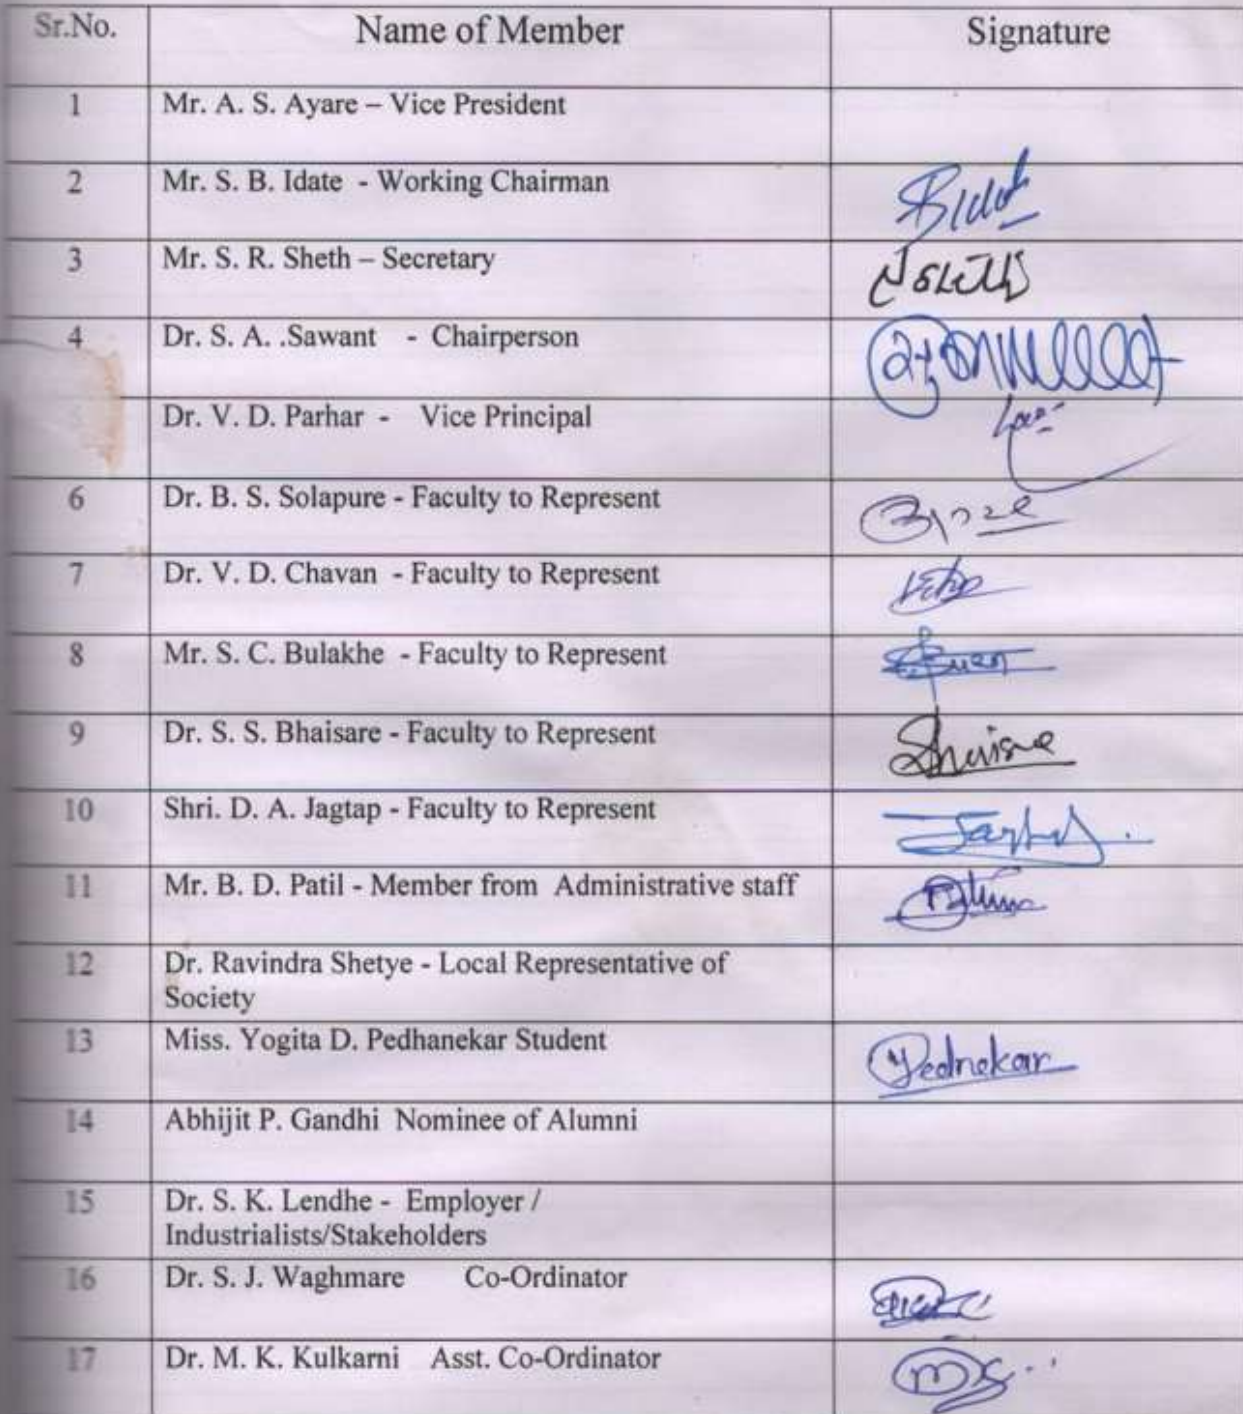 Sr.No. Name of Member Signature
1 Mr. A. S. Ayare – Vice President
2 Mr. S. B. Idate - Working Chairman
3 Mr. S. R. Sheth – Secretary
4 Dr. S. A. .Sawant - Chairperson
Dr. V. D. Parhar - Vice Principal
6 Dr. B. S. Solapure - Faculty to Represent
7 Dr. V. D. Chavan - Faculty to Represent
8 Mr. S. C. Bulakhe - Faculty to Represent
9 Dr. S. S. Bhaisare - Faculty to Represent
10 Shri. D. A. Jagtap - Faculty to Represent
11 Mr. B. D. Patil - Member from Administrative staff
12 Dr. Ravindra Shetye - Local Representative of
Society
13 Miss. Yogita D. Pedhanekar Student Pednekar
14 Abhijit P. Gandhi Nominee of Alumni
15 Dr. S. K. Lendhe - Employer /
Industrialists/Stakeholders
16 Dr. S. J. Waghmare Co-Ordinator
17 Dr. M. K. Kulkarni Asst. Co-Ordinator